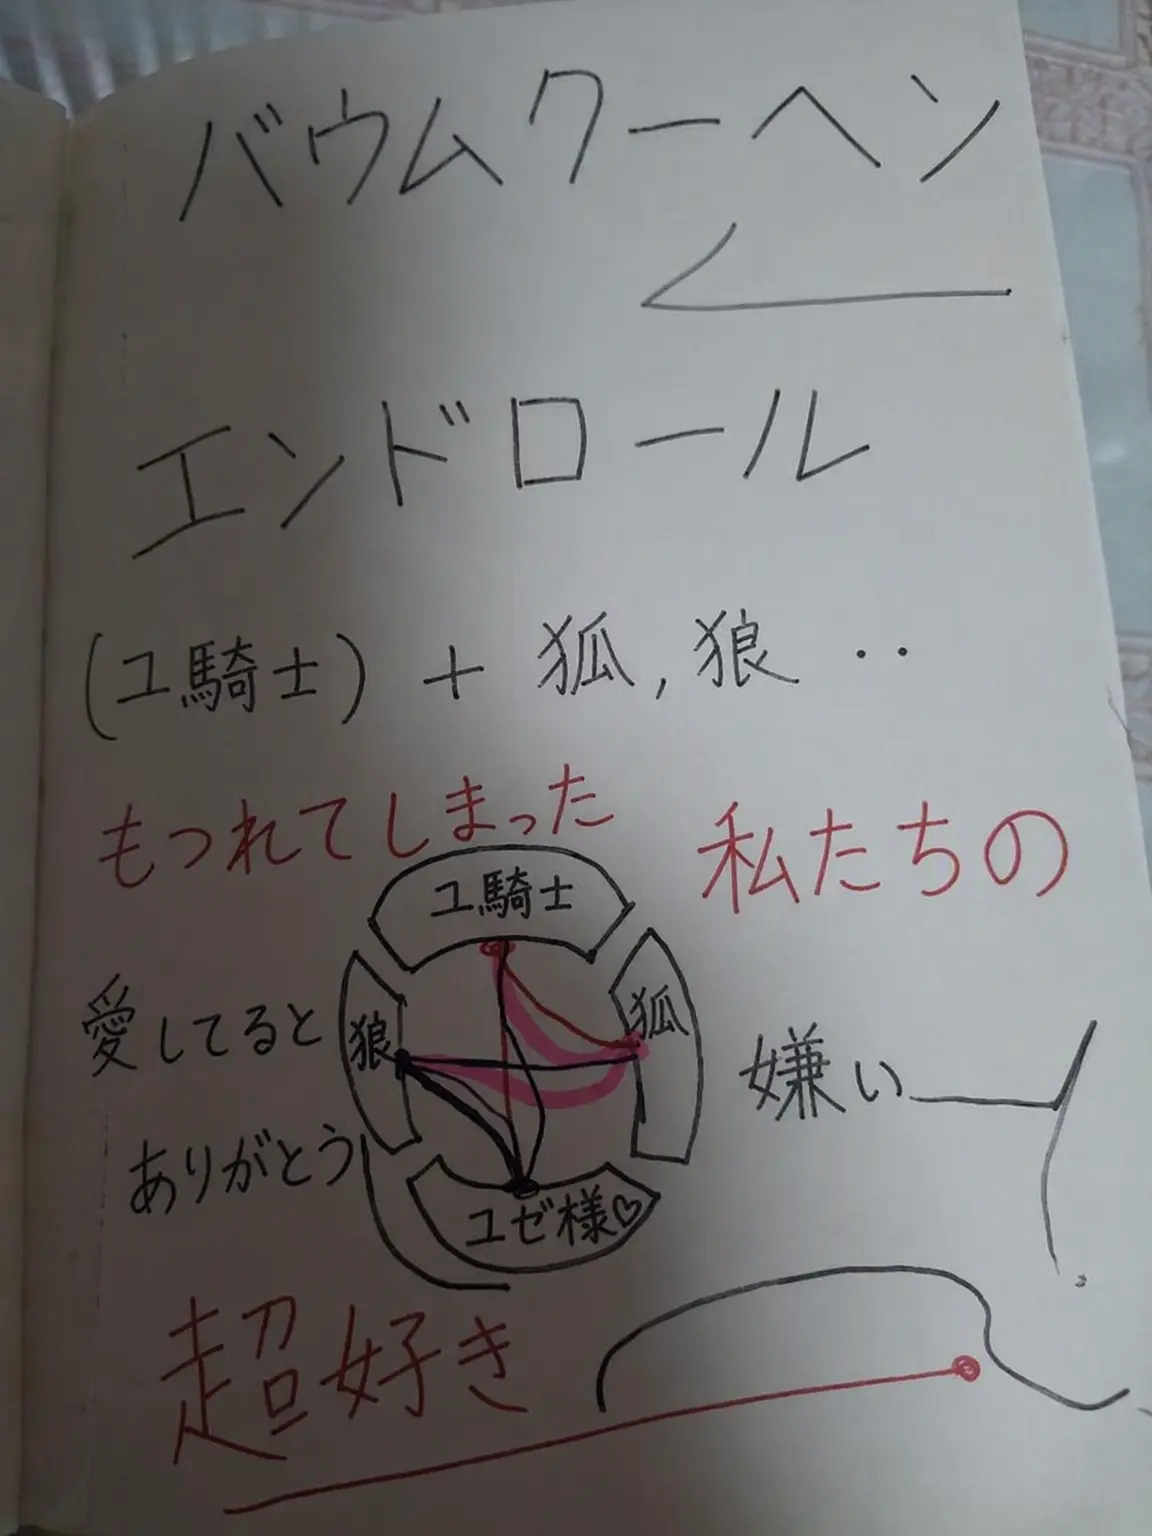 バウムクーヘン
エンドロール
(ユ騎士) + 狐, 狼 ‥
もつれてしまった 私たちの
ユ騎士
狼
狐
ユゼ様♡
愛してると
ありがとう
嫌い
超好き